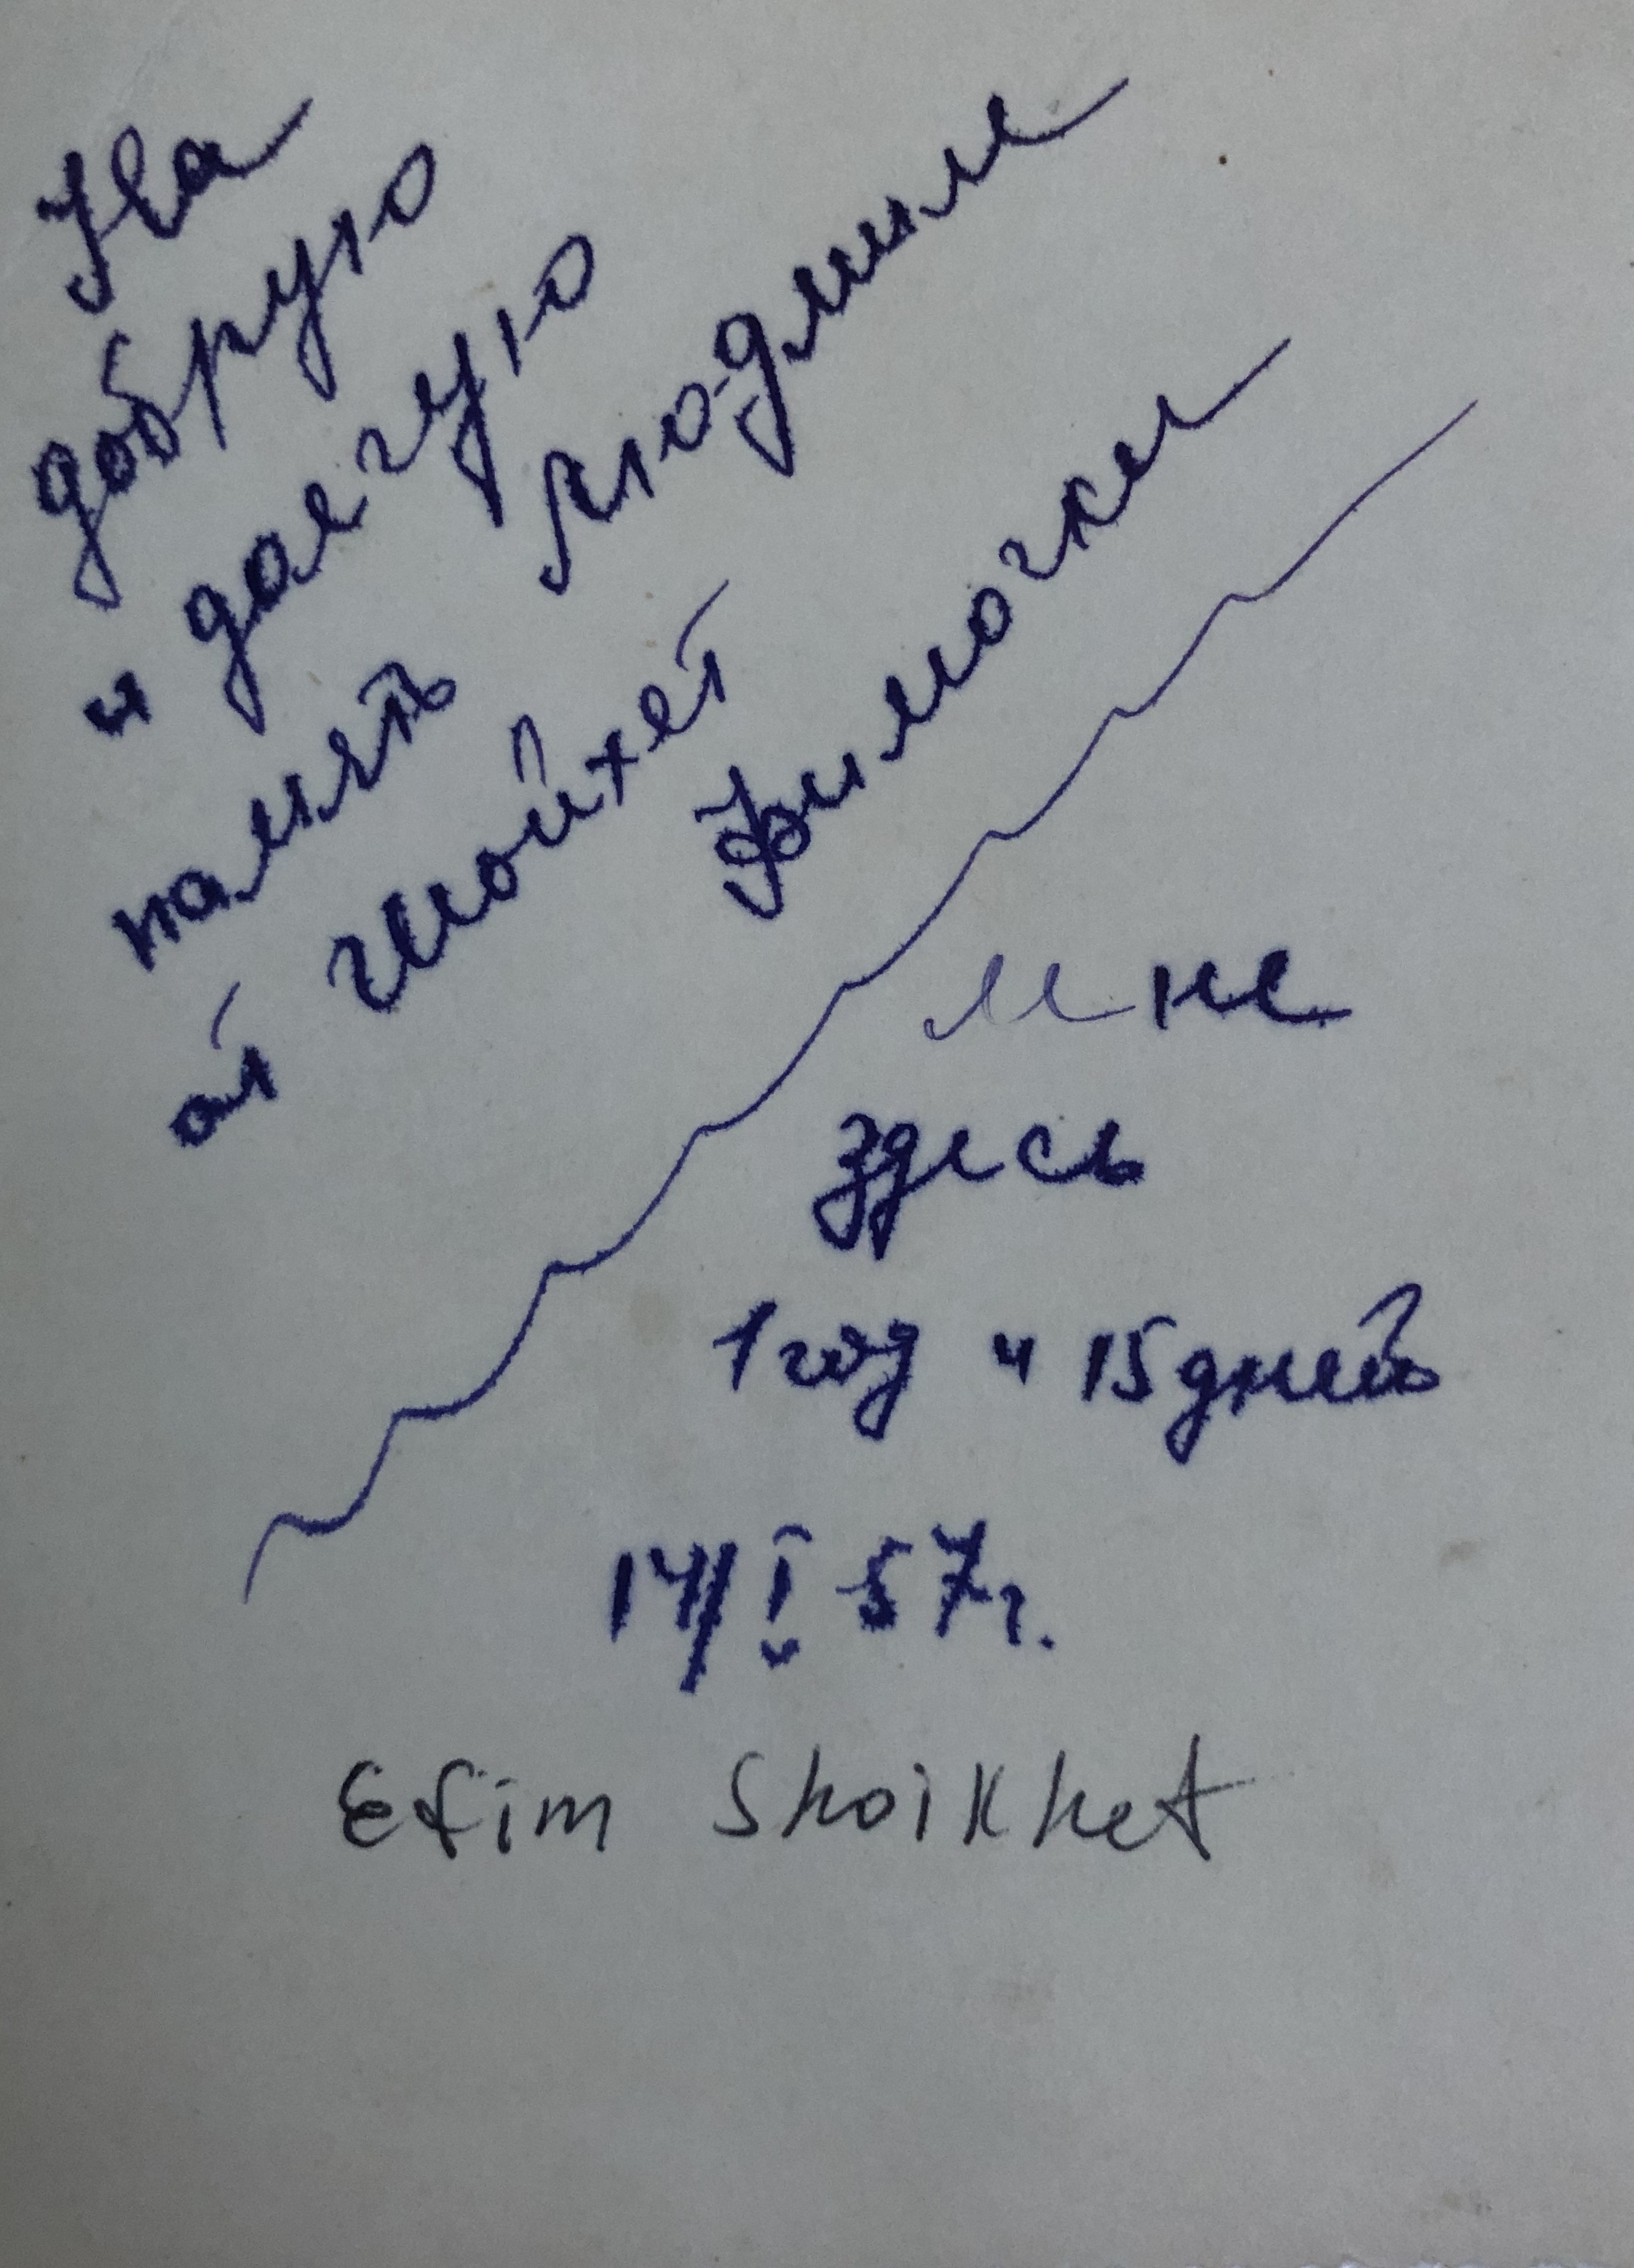 На
добрую
и долгую
память Людмиле
от Шойхет
Фимочки
мне
здесь
1 год и 15 дней
14/I 57г.
Efim Shoikhet